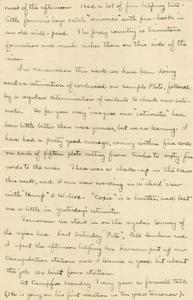 most of the afternoon. Had a lot of fun helping two
little farmer's boys catch "minnows" with pin-hooks in
an old mill-pond. The Jersey country is limestone
formation and much richer than on this side of the
river.
In cruising this week we have been doing
ocular estimation of cordwood on Sample Plots, followed
by a regular determination of contents to check our esti-
mates. So far you may imagine our 'estimates' have
been little better than mere guesses, but we are learning. I
have had a pretty good average, coming within five cords
on each of fifteen plots cutting from twelve to eighty five
cords to the acre. There was a shake-up in the crews
this week, and I am now working in a short crew
with "Hump" & Wilcox. "Coxie" is a hustler, and beat
me a little in yesterday's estimates.
Tomorrow we start in on the regular Survey of
the area here. Last Saturday 'Pete', Ben Benham and
I spent the afternoon helping put up our
triangulation stations and I learned a good bit about
the job. We built four stations.
At Campfire Monday I gave a farewell talk
(He is going on his first vacation in ten years tomorrow)